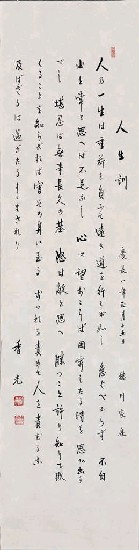 人生訓 慶長八年正月十五日 徳川家康
人の一生は重荷を負うて遠き道を行くが如し 急ぐべからず 不自
由を常と思へば不足なし 心に望おこらば困窮したる時を思い出す
べし 堪忍は無事長久の基 怒は敵と思へ 勝つことを許り知りて
くることを知らざれば害その身に至る おのれを責めて人を責めるな
及ばざるは過ぎたるよりまされり
香光